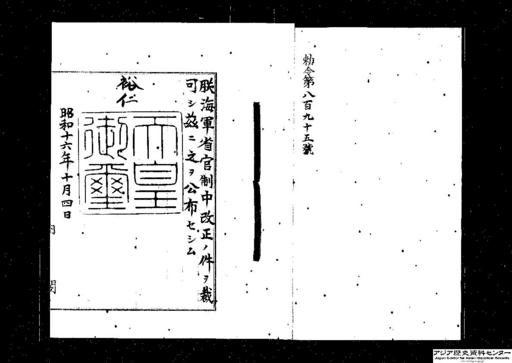 勅令第八百九十五號
朕海軍省官制中改正ノ件ヲ裁
可シ茲ニ之ヲ公布セシム
裕仁
天皇
御璽
昭和十六年十月四日
内
閣
アジア歴史資料センター
Japan Center for Asian Historical Records